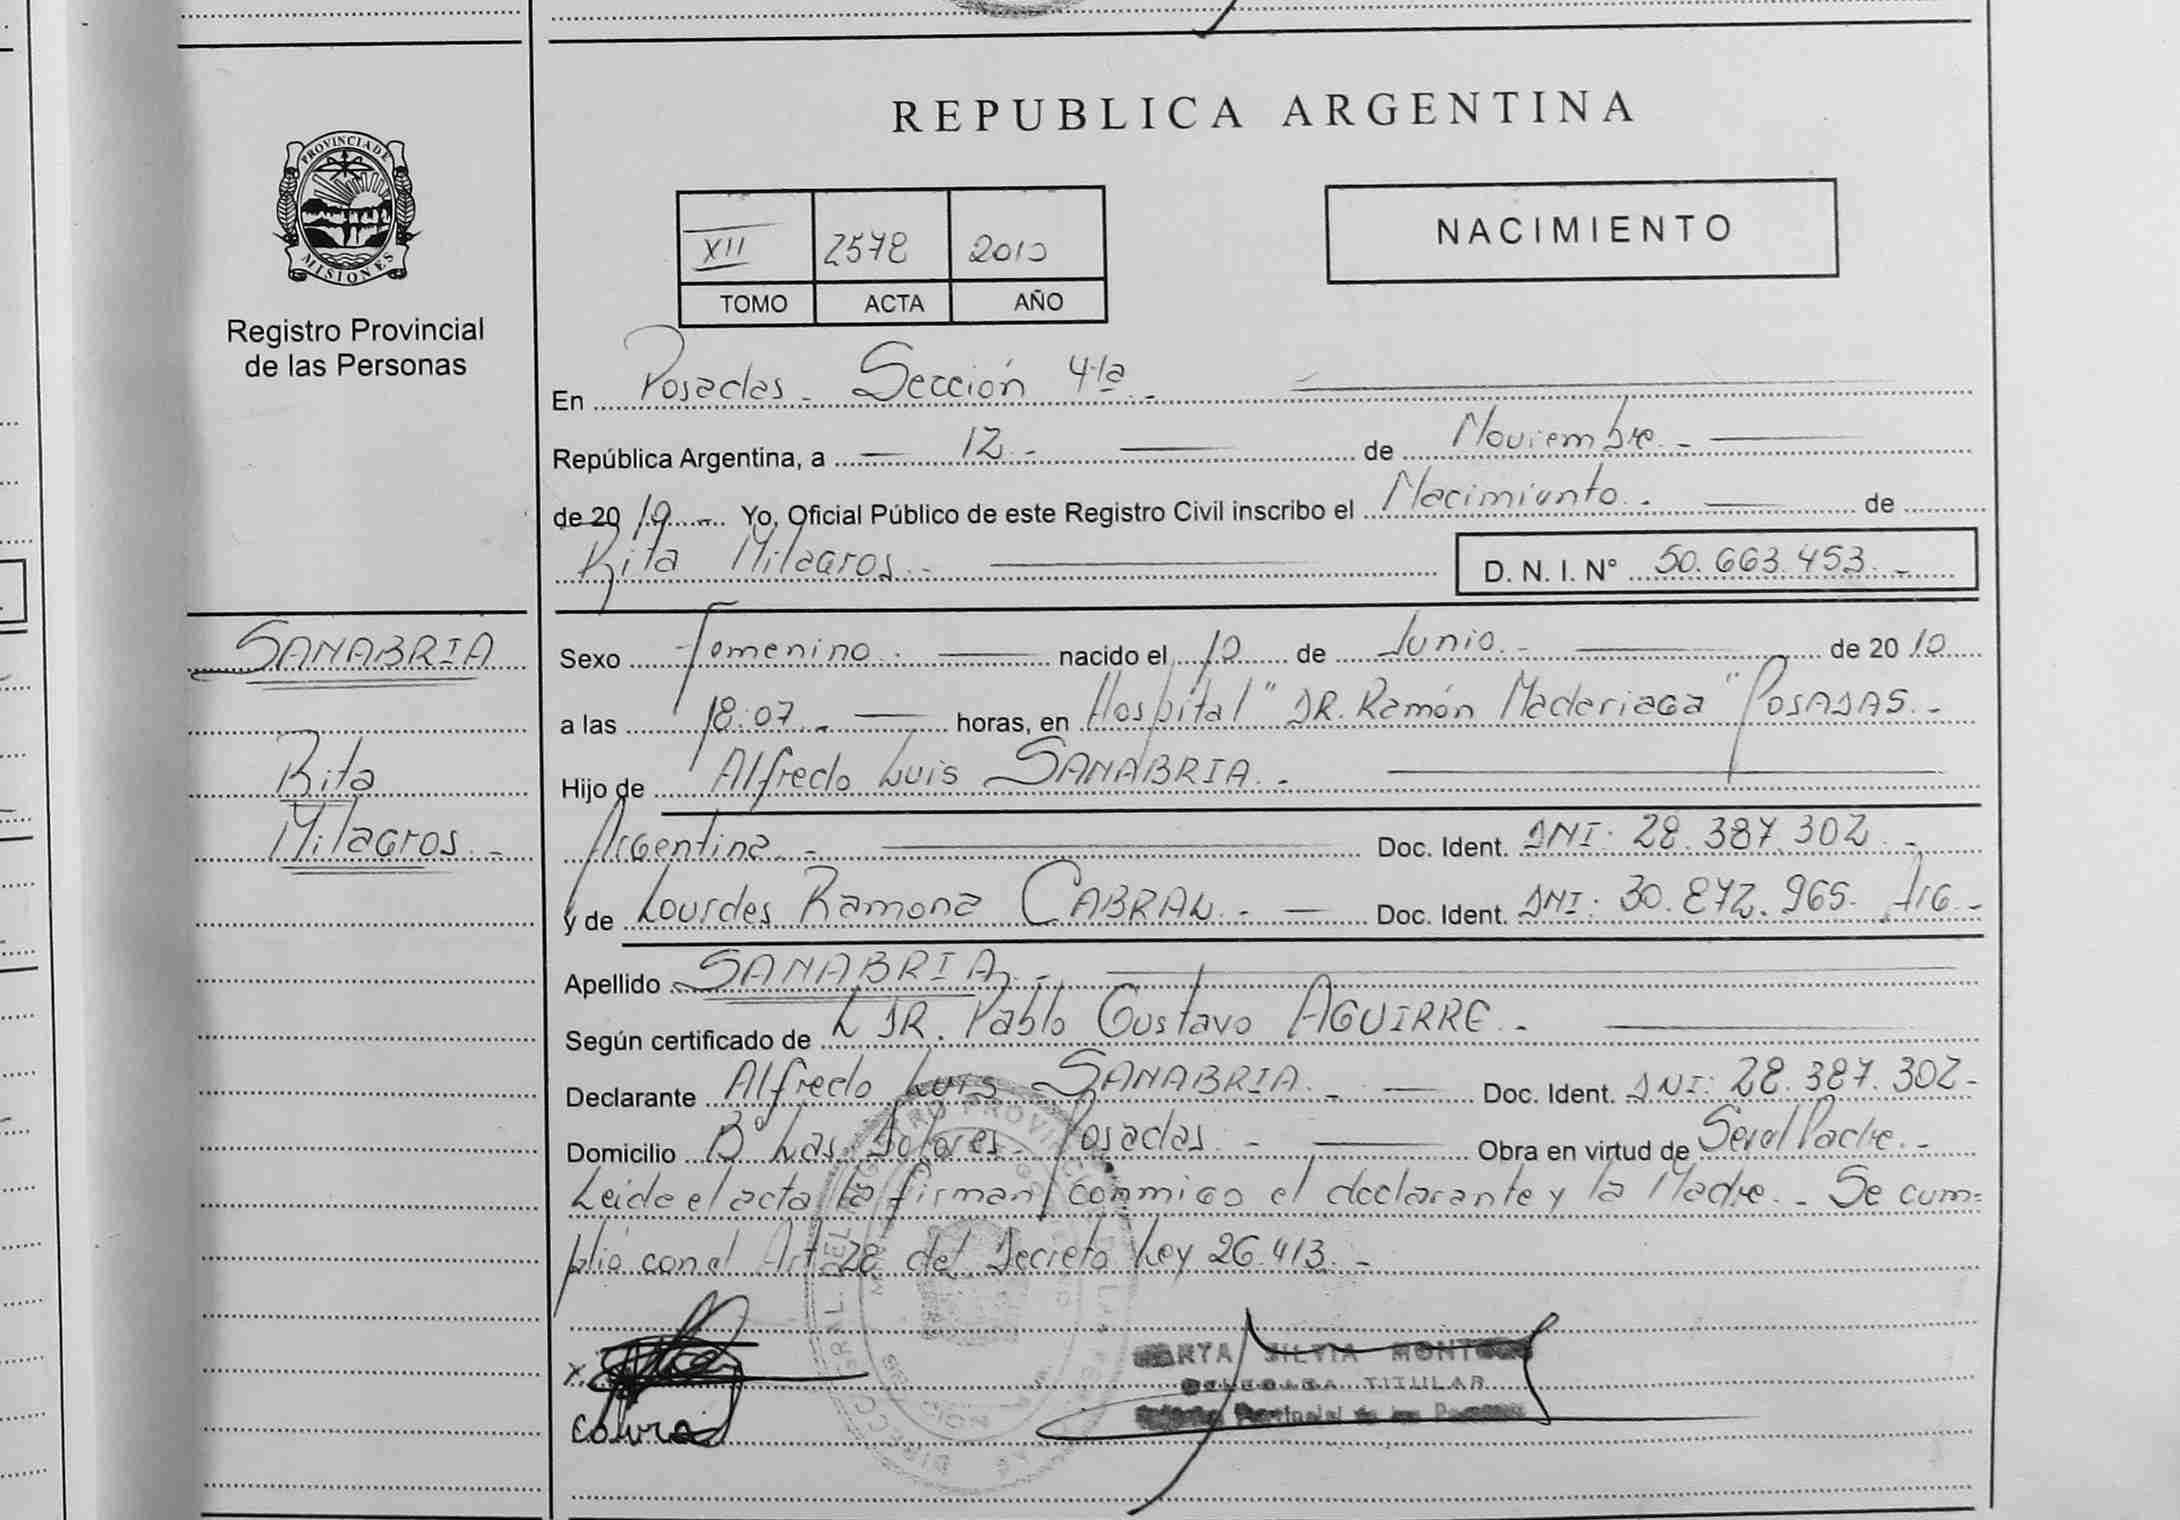 REPUBLICA ARGENTINA
PROVINCIA DE
MISIONES
Registro Provincial
de las Personas
NACIMIENTO
XII 2578 2010
TOMO ACTA AÑO
En Posadas - Sección 4ta. -
República Argentina, a 12 - de Noviembre. -
de 2010 - Yo, Oficial Público de este Registro Civil inscribo el Nacimiento. - de
Rita Milagros. - D. N. I. N° 50.663.453. -
SANABRIA
Rita
Milagros. -
Sexo Femenino. nacido el 10 de Junio. - de 2010
a las 18:07 - horas, en Hospital "DR. Ramón Madariaga" POSADAS. -
Hijo de Alfredo Luis SANABRIA. -
Argentina. - Doc. Ident. DNI: 28.387.302. -
y de Lourdes Ramona CABRAL. - Doc. Ident. DNI: 30.872.965. Arg. -
Apellido SANABRIA. -
Según certificado de L DR. Pablo Gustavo AGUIRRE. -
Declarante Alfredo Luis SANABRIA. - Doc. Ident. DNI: 28.387.302 -
Domicilio B° Las Dolores - Posadas. - Obra en virtud de Ser el Padre. -
Leida el acta la firman conmigo el declarante y la Madre. - Se cum=
plió con el Art 28 del Decreto Ley 26.413. -
SILVIA
TITULAR
Provincial de las Personas